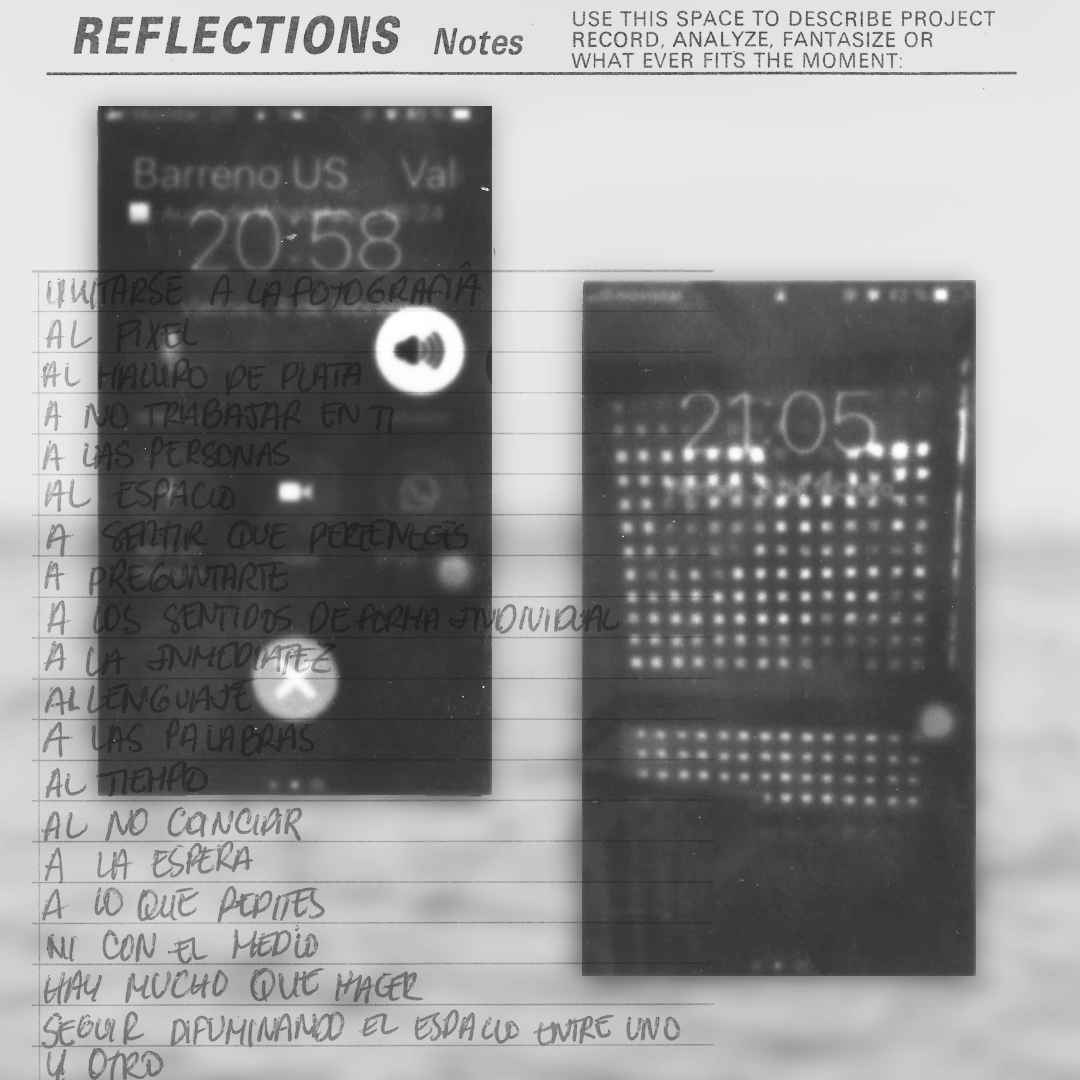 REFLECTIONS Notes
USE THIS SPACE TO DESCRIBE PROJECT
RECORD, ANALYZE, FANTASIZE OR
WHAT EVER FITS THE MOMENT:
Barreno US Val
20:58
21:05
LIMITARSE A LA FOTOGRAFÍA
AL PIXEL
AL HALURO DE PLATA
A NO TRABAJAR EN TI
A LAS PERSONAS
AL ESPACIO
A SENTIR QUE PERTENECES
A PREGUNTARTE
A LOS SENTIDOS DE FORMA INDIVIDUAL
A LA INMEDIATEZ
AL LENGUAJE
A LAS PALABRAS
AL TIEMPO
AL NO
A LA ESPERA
A LO QUE
NI CON EL MEDIO
HAY MUCHO QUE HACER
SEGUIR DIFUMINANDO EL ESPACIO ENTRE UNO
Y OTRO